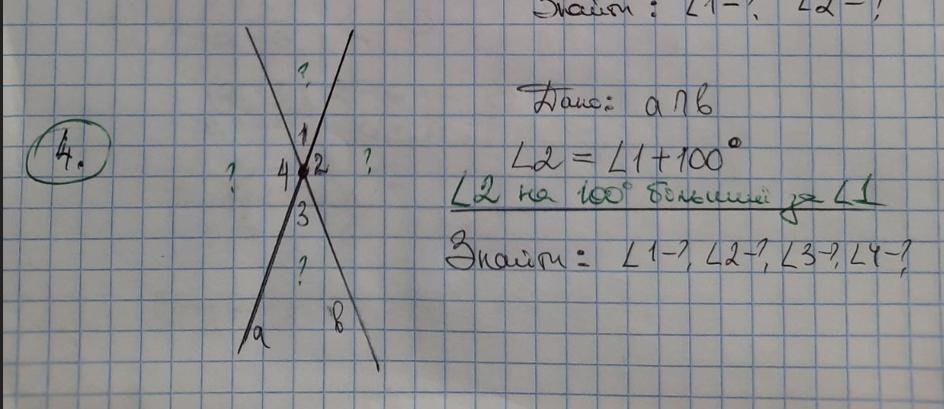 Знайти: ∠1-?, ∠2-?
4.
?
1
4 2
? ?
3
?
a b
Дано: a∩b
∠2 = ∠1+100°
∠2 на 100° більший за ∠1
Знайти: ∠1-?, ∠2-?, ∠3-?, ∠4-?